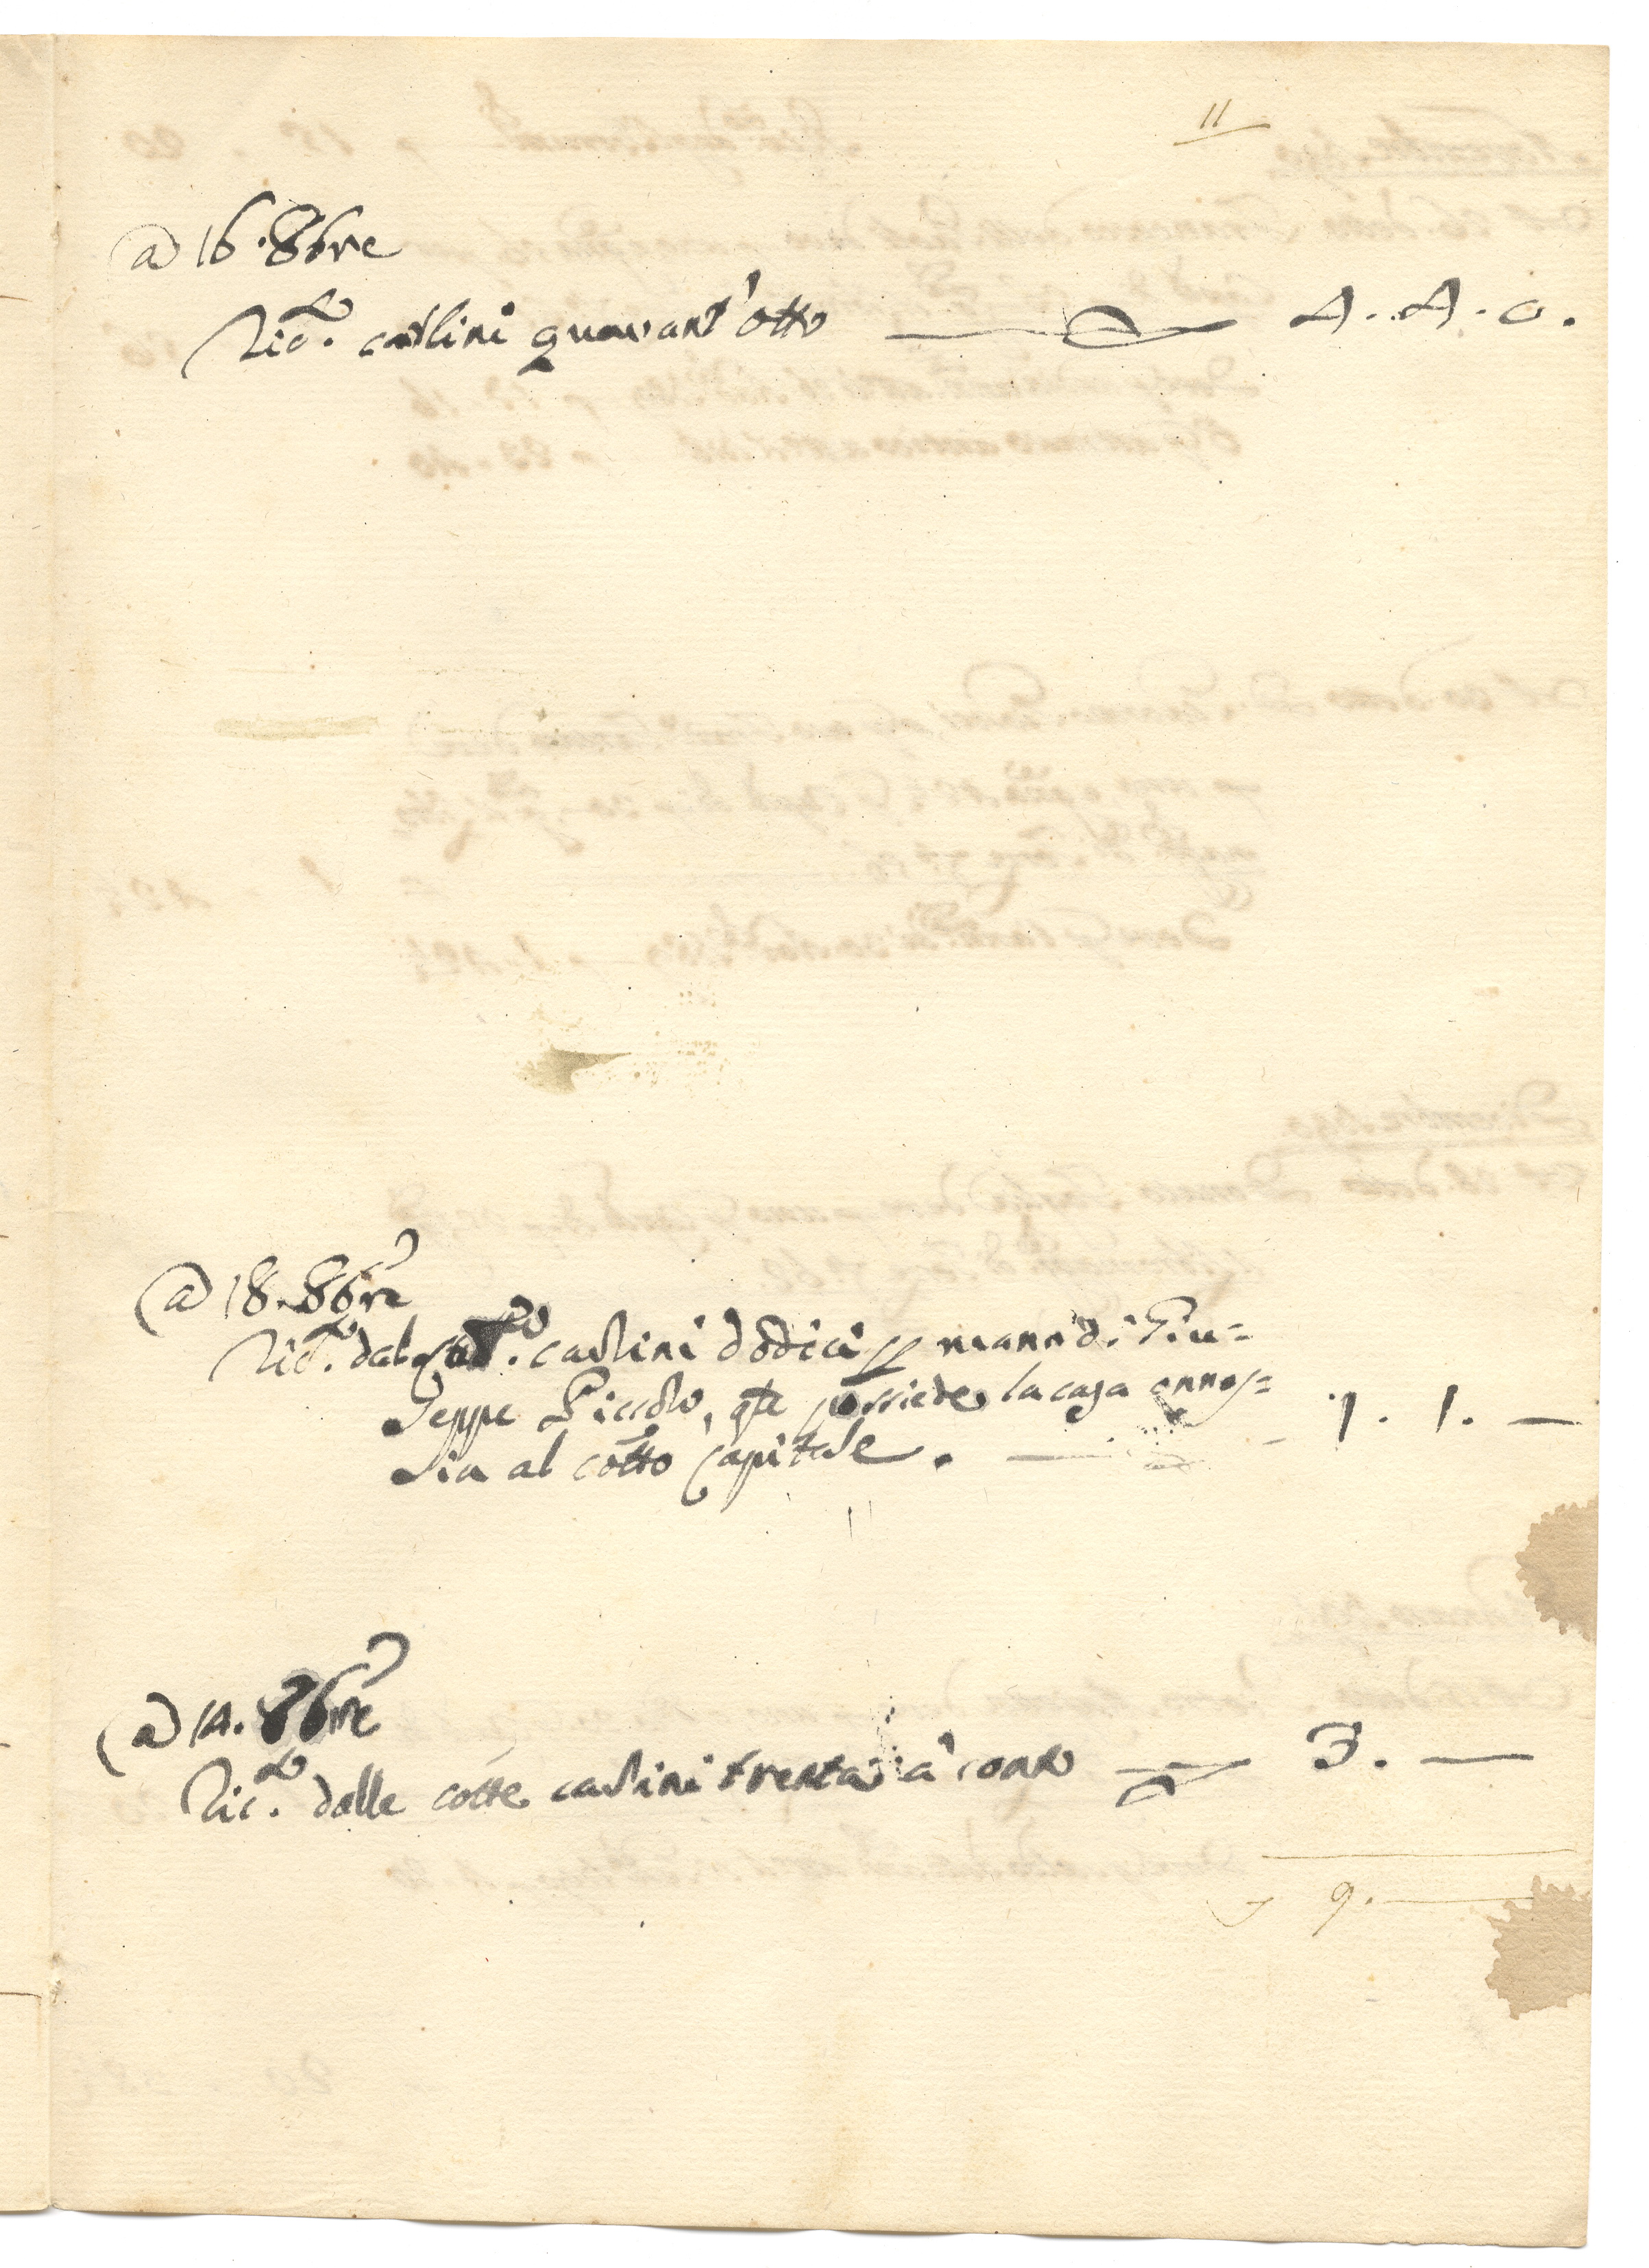 11
a 16. 8bre
Ric.to carlini quarant'otto 4. 4. 0.
a 18. 8bre
Ric.to dal carlini dodici p mano di Giu=
seppe Piccolo, possiede la casa
ria al cõtto capitale. 1. 1. —
a 14. 8bre
Ric.to dalle cotte carlini trenta à conto 3. —
9. —